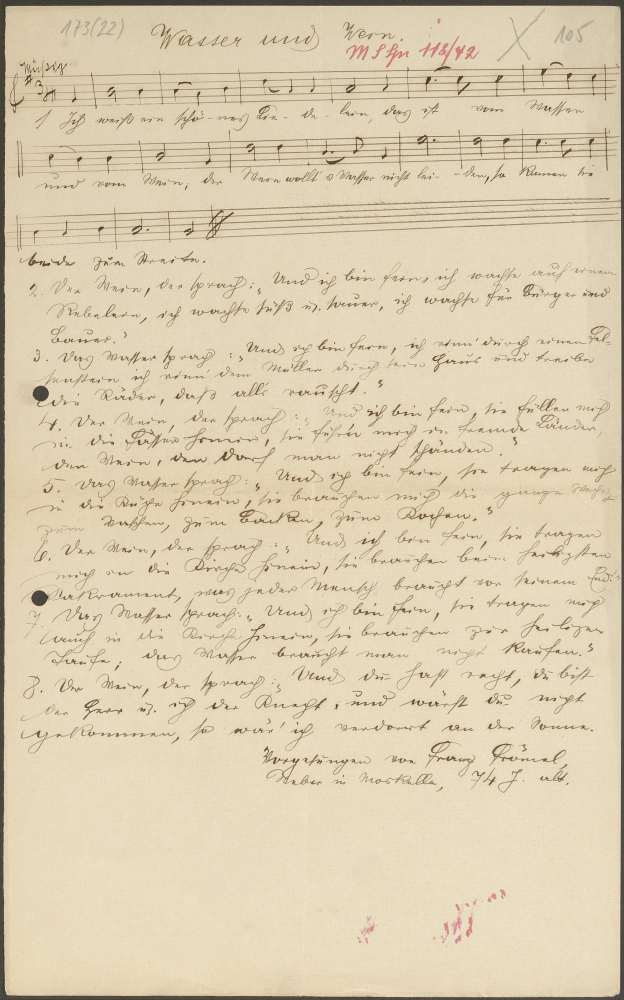 173(22)
Wasser und Wein.
105
Mäßig
1 Ich weiß ein schö-nes Lie-de-lein, das ist vom Wasser
und vom Wein, der Wein wollt's Wasser nicht lei-den, so kamen sie
beide zum Streite.
2. Der Wein, der sprach: „Und ich bin fein, ich wachse auf einem
Rebelein, ich wachse süß u. sauer, ich wachse für Bürger und
Bauer."
3. Das Wasser sprach: „Und ich bin fein, ich rinn' durch einen Fel-
senstein ich rinn dem Müller durch sein Haus und treibe
die Räder, daß alls rauscht."
4. Der Wein, der sprach: „Und ich bin fein, sie füllen mich
in die Fässer hinein, sie führn mich in fremde Länder,
den Wein, den darf man nicht schänden."
5. Das Wasser sprach: „Und ich bin fein, sie tragen mich
in die Küche hinein, sie brauchen mich die ganze Woche
zum Waschen, zum Backen, zum Kochen."
6. Der Wein, der sprach: „Und ich bin fein, sie tragen
mich in die Kirche hinein, sie brauchen beim heiligsten
Sakrament, was jeder Mensch braucht vor seinem End."
7. Das Wasser sprach: „Und ich bin fein, sie tragen mich
auch in die Kirche hinein, sie brauchen zur heiligen
Taufe; das Wasser braucht man nicht kaufen."
8. Der Wein, der sprach: „Und du hast recht, du bist
der Herr u. ich der Knecht, und wärst du nicht
gekommen, so wär' ich verdorrt an der Sonne.
Vorgesungen von Franz Frömel,
Weber in Moskelle, 74 J. alt.